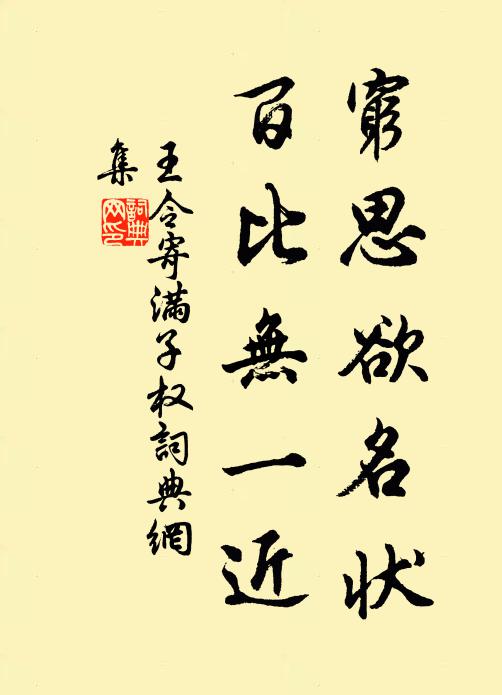 窮思欲名状
百比無一近
王令寄滿子权詞典網
集
詞典
网印